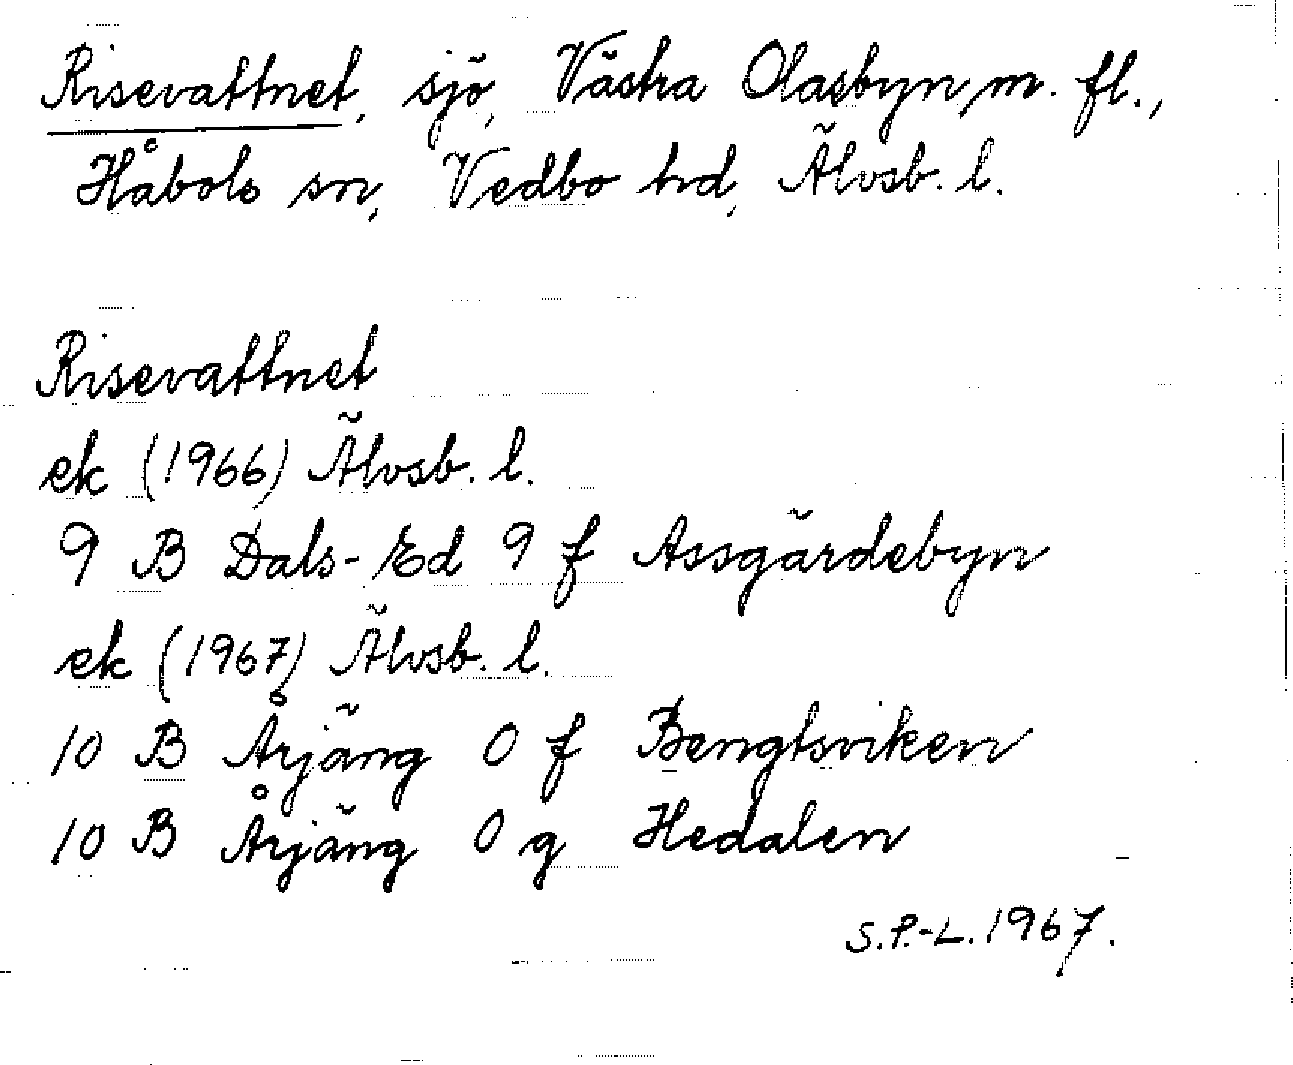 Risevattnet, sjö, Västra Olasbyn, m. fl.,
Håbols sn, Vedbo hd, Älvsb. l.
Risevattnet
ek (1966) Älvsb. l.
9 B Dals-Ed 9 f Assgärdebyn
ek (1967) Älvsb. l.
10 B Årjäng 0 f Bengtsviken
10 B Årjäng 0 g Hedalen
S.P.-L. 1967.